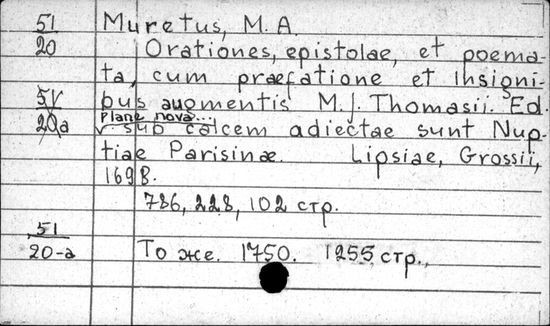 51 Muretus, M. A.
20 Orationes, epistolae, et poema-
ta, cum præfatione et insigni-
51 bus augmentis M. J. Thomasii. Ed.
plane nova...
20a v. sub calcem adiectae sunt Nup-
tiae Parisinæ. Lipsiae, Grossii,
1698.
786, 228, 102 стр.
51
20-a То же. 1750. 1255 стр.,